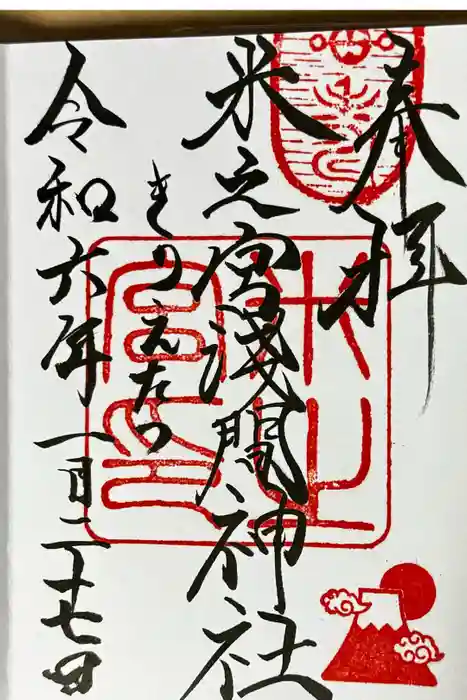 奉拝
米之宮浅間神社
きのえたつ
令和六年一月二十七日
米之宮印